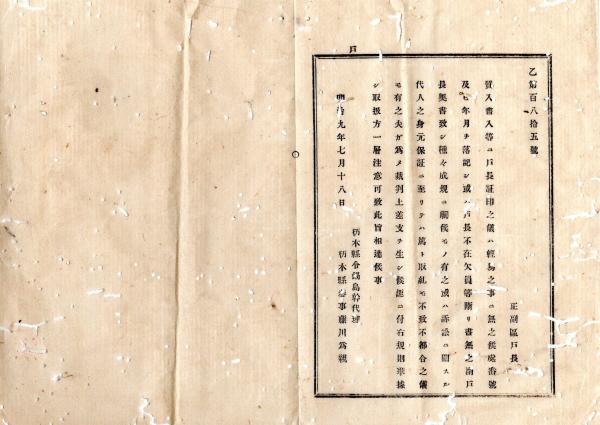 戸
乙第百八拾五號
正副區戸長
質入書入等ニ戸長証印之儀ハ輕易之事ニ無之候處番號
及ヒ年月ヲ落記シ或ハ戸長不在欠員等斷リ書無之尚戸
長奥書致シ種々成規ニ觸候モノ有之或ハ訴訟ニ關スル
代人之身元保証ニ至リテハ篤ト取糺モ不致不都合之儀
モ有之夫カ爲メ裁判上差支ヲ生シ候趣ニ付右規則準據
シ取扱方一層注意可致此旨相達候事
明治九年七月十八日
栃木縣令鍋島幹代理
栃木縣參事藤川爲親